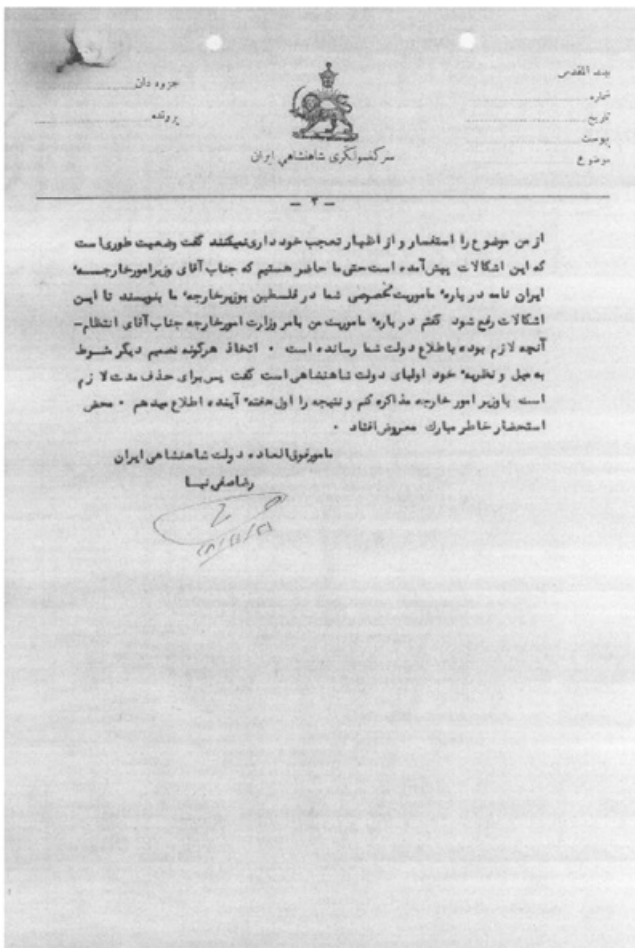 بیت المقدس
شماره
تاریخ
پیوست
موضوع
جزوه دان
پرونده
سرکنسولگری شاهنشاهی ایران
- ۳ -
از من موضوع را استفسار و از اظهار تعجب خودداری نمیکنند گفت وضعیت طوری است
که این اشکالات پیش آمده است حتی ما حاضر هستیم که جناب آقای وزیر امور خارجه
ایران نامه در باره ماموریت تخصوصی شما در فلسطین بوزیر خارجه ما بنویسند تا این
اشکالات رفع شود گفتم در باره ماموریت من بامر وزارت امور خارجه جناب آقای انتظام-
آنچه لازم بوده باطلاع دولت شما رسانده است ۰ اتخاذ هرگونه تصمیم دیگر منوط
به میل و نظریه خود اولیای دولت شاهنشاهی است گفت پس برای حذف مدت لازم
است باوزیر امور خارجه مذاکره کنم و نتیجه را اول هفته آینده اطلاع میدهم ۰ محض
استحضار خاطر مبارک معروض افتاد ۰
مامور فوق العاده دولت شاهنشاهی ایران
رضا صفی نیا